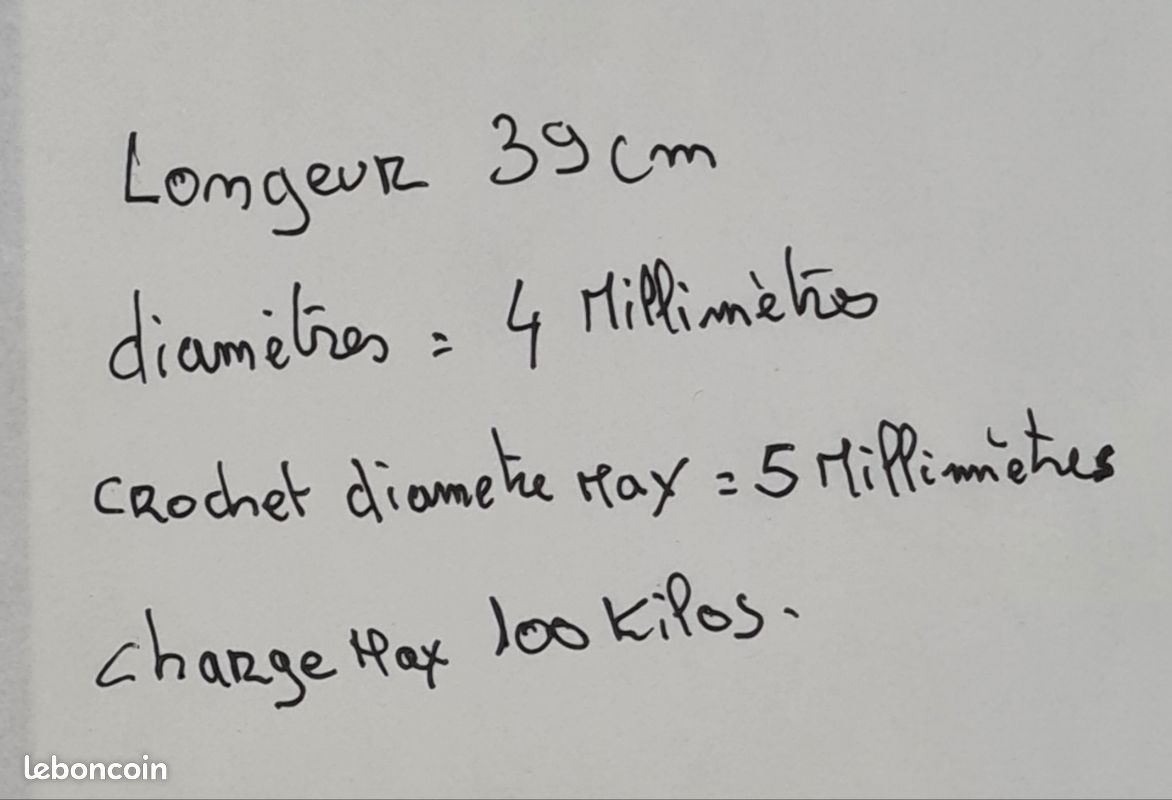 Longeur 39 cm
diamètres = 4 Millimètres
crochet diametre Max = 5 Millimètres
charge Max 100 Kilos.
leboncoin